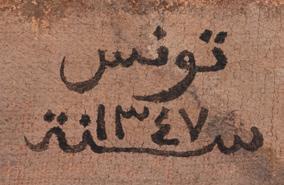 تونس
سنة ١٣٤٧